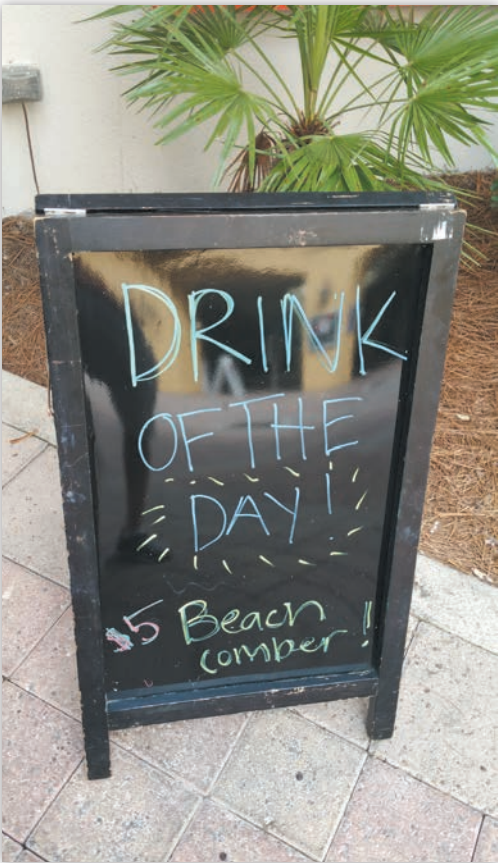 DRINK
OF THE
DAY!
$5 Beach
comber!!